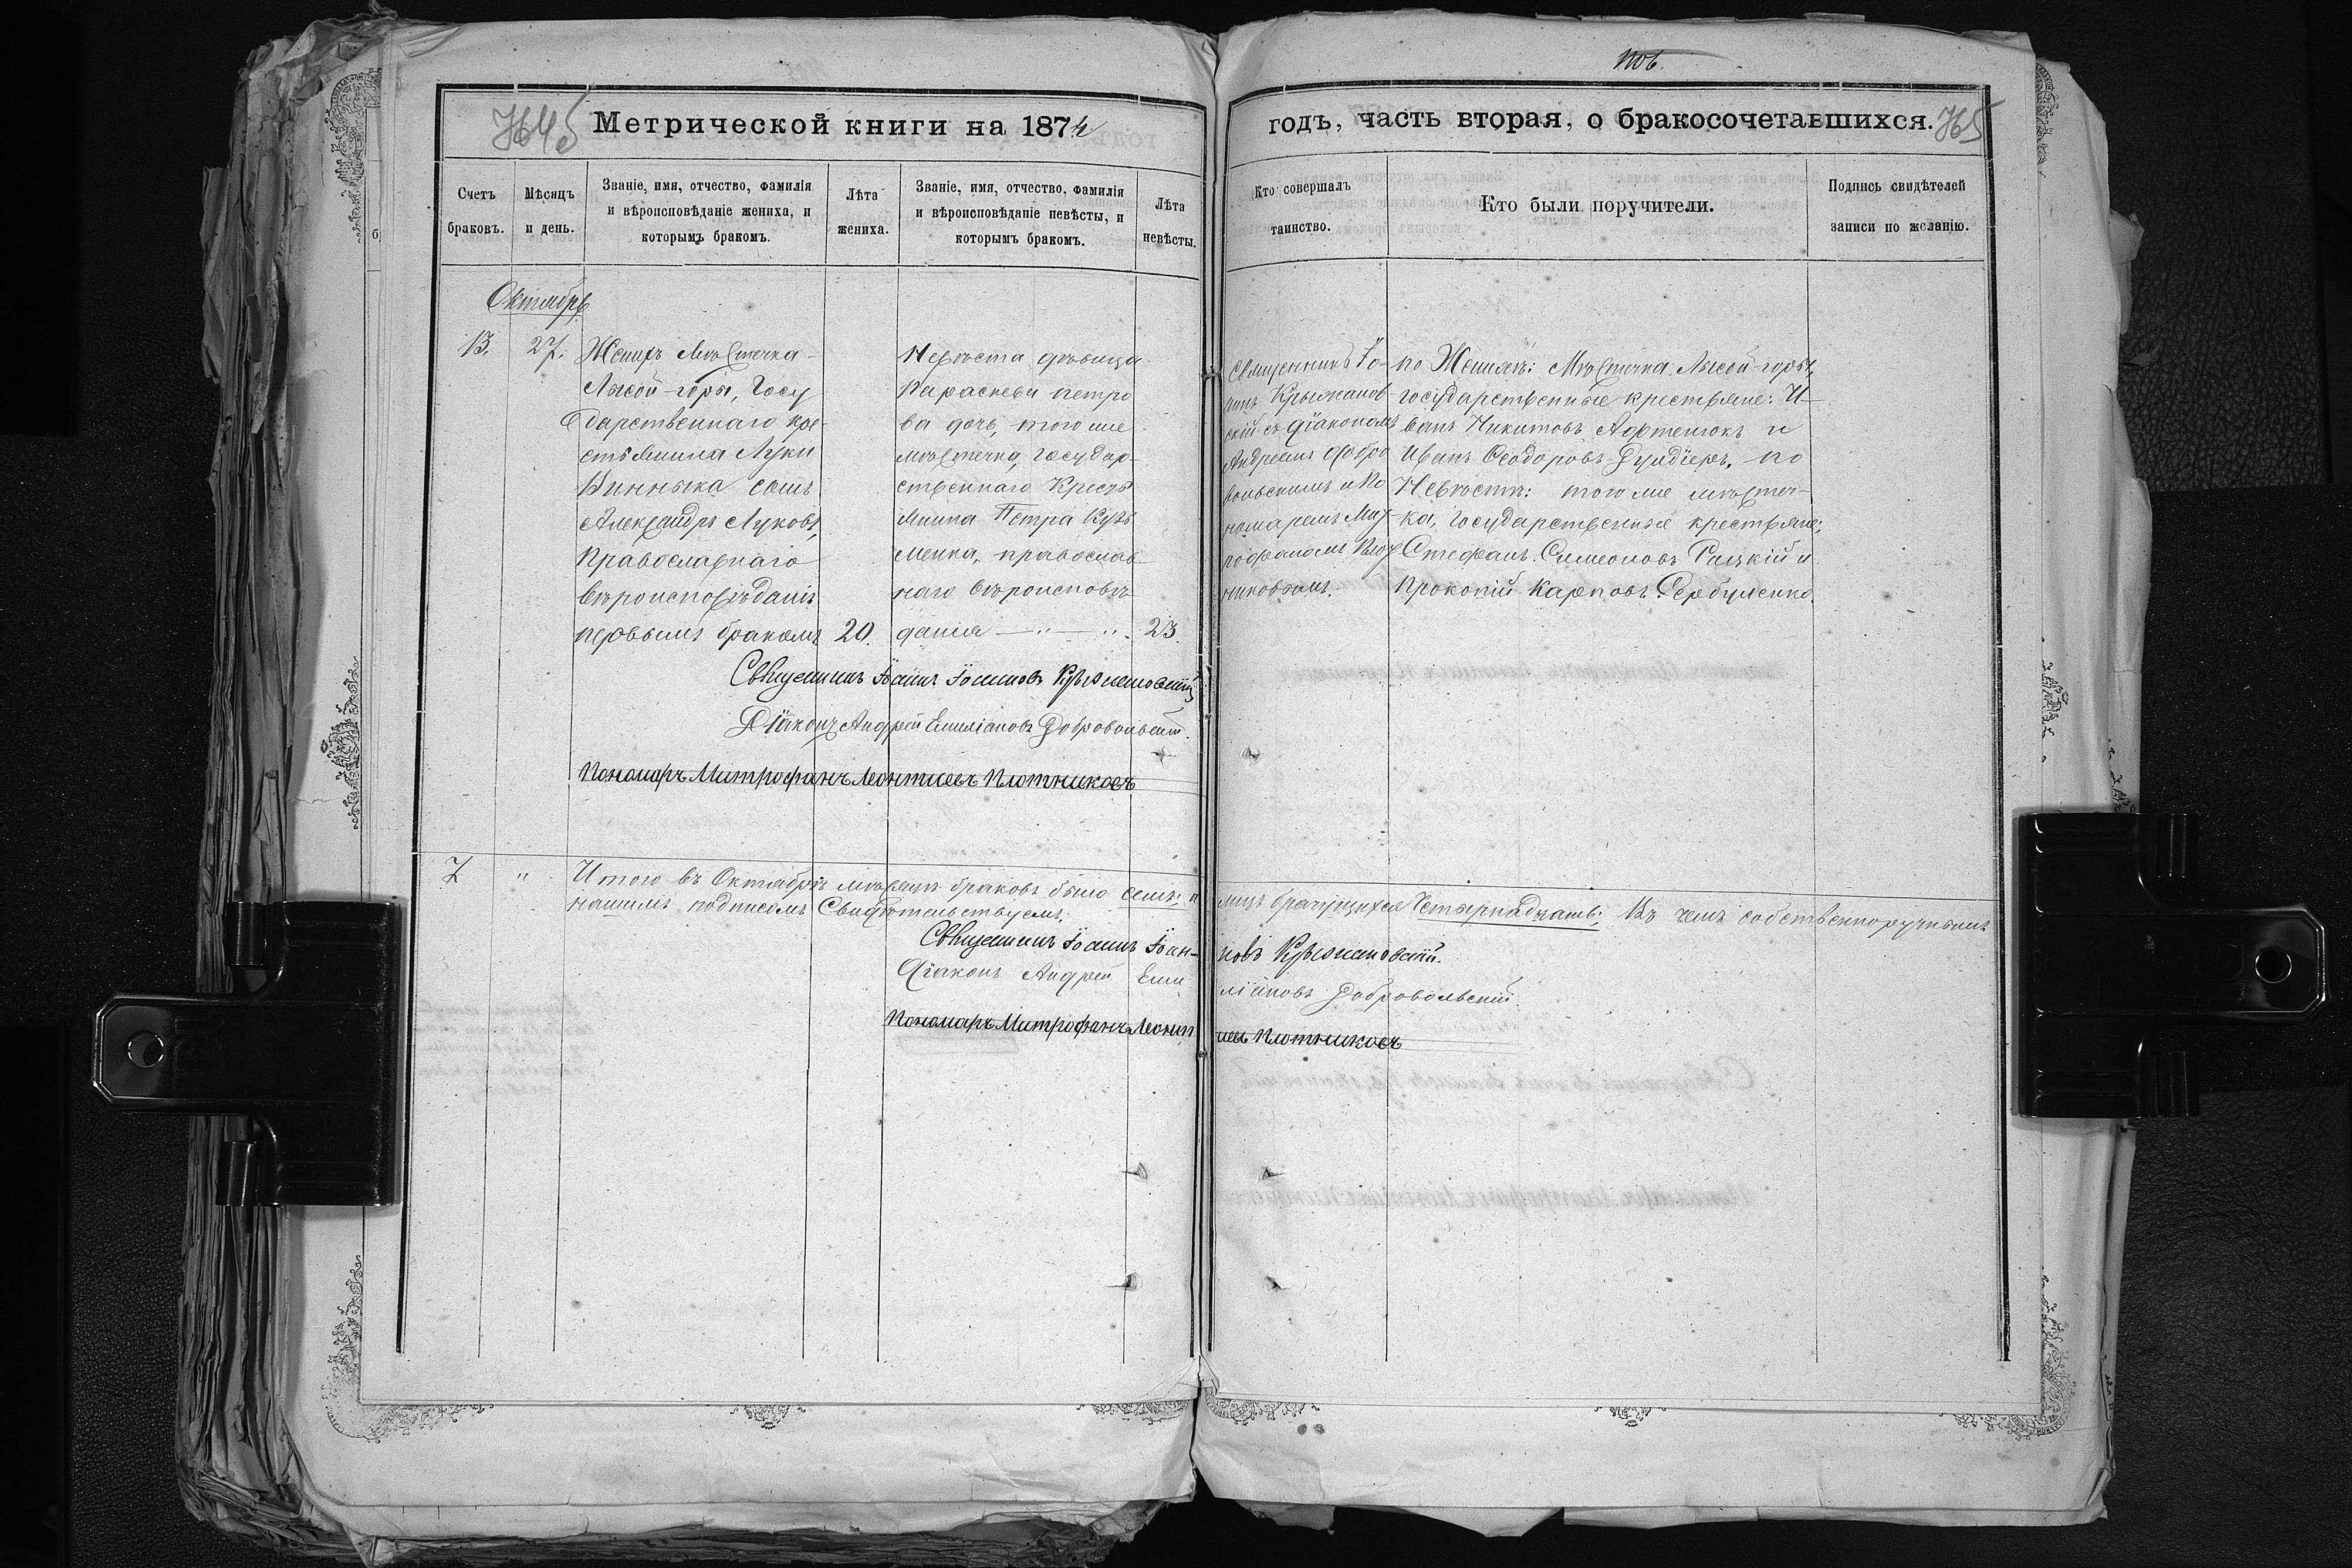 пов.
7645
Метрической книги на 1874
годъ, часть вторая, о бракосочетавшихся.
765
Счетъ браковъ.
Мѣсяцъ и день.
Званіе, имя, отчество, фамилія
и вѣроисповѣданіе жениха, и
которымъ бракомъ.
Лѣта
жениха.
Званіе, имя, отчество, фамилія
и вѣроисповѣданіе невѣсты, и
которымъ бракомъ.
Лѣта
невѣсты.
Кто совершалъ
таинство.
Кто были поручители.
Подпись свидѣтелей
записи по желанію.
Октябрь
13. 27.
Женихъ Мѣстечка
Лысой-горы, Госу
дарственнаго кре-
стьянина Луки
Винныка сынъ
Александръ Луковъ,
Православнаго
вѣроисповѣданія
первымъ бракомъ
20.
Невѣста дѣвица
Параскева Петро
ва дочь, того же
мѣстечка, Государ-
ственнаго Кресть
янина Петра Кузь
менка, православ
наго вѣроисповѣ
данія — " — "
23.
Священникъ Іо-
аннъ Крыжанов-
скій съ діакономъ
Андреемъ Добро
вольскимъ и По
номаремъ Мит-
рофаномъ Плот
никовымъ.
по Женихѣ: Мѣстечка Лысой-горы,
государственные крестьяне: И-
ванъ Никитовъ и
Иванъ Ѳеодоровъ по
Невѣстѣ: того же мѣстеч-
ка, Государственные крестьяне:
Стефанъ Симеоновъ Рацкій и
Прокопій Карповъ Дербуленко.
Священникъ Іоаннъ Іоанновъ Крыжановскій
Діаконъ Андрей Емиліановъ Добровольскій.
Пономарь Митрофанъ Леонтиевъ Плотниковъ
7 " Итого въ Октябрѣ мѣсяцѣ браковъ было семь; и лицъ брачущихся Четырнадцать; Въ чемъ собственноручнымъ
нашимъ подписомъ Свидѣтельствуемъ:
Священникъ Іоаннъ Іоан-новъ Крыжановскій.
Діаконъ Андрей Еми ліановъ Добровольскій.
Пономарь Митрофанъ Леонт иевъ Плотниковъ